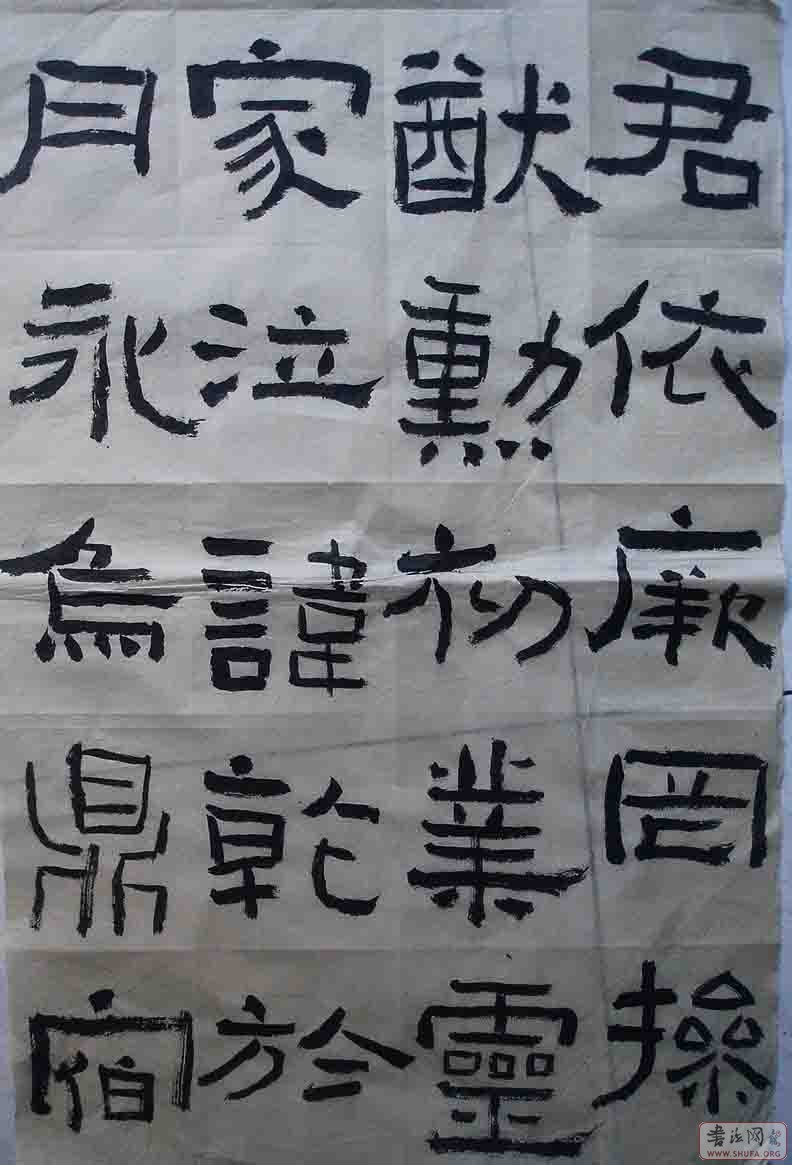 君依厥罔操
猷勳初業靈
家泣諱乾於
月永烏鼎宿
书法网
WWW.SHUFA.ORG